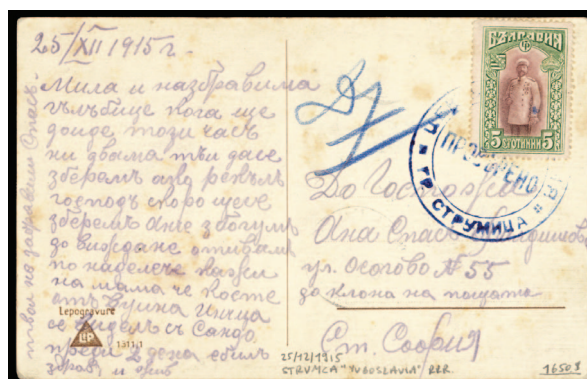 25/XII 1915 г.
Мила и
гълъбице кога ще
дойде този час
ни двама тъй да се
зберем
господ скоро ще се
зберем Анче з богум
до виждане отивам
по на далече кажи
на мама че Коста
от Виена
се видел с Сандо
преди 2 дена е бил
здрав и жив
твой
Lepogravure
LP
1311/1
БЪЛГАРИЯ
5 СТОТИНКИ 5
ПРОВѢРЕНО
ГР. СТРУМИЦА
До Госпожа
Ана Спас
ул. Осогово № 55
до клона на пощата
Ст. София
25/12/1915
STRUMICA "YUGOSLAVIA" RRR.
16503